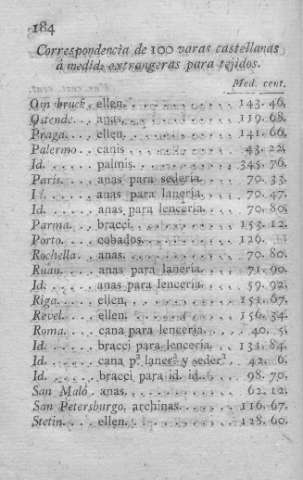 184
Correspondencia de 100 varas castellanas
á medidas extrangeras para tejidos.
Med. cent.
ellen. . . . . . . . . . 143. 46.
Ostende. . . anas. . . . . . . . . . 119. 68.
Praga. . . . ellen. . . . . . . . . . 141. 66.
Palermo. . . canis . . . . . . . . . 43. 22.
Id. . . . . . palmis. . . . . . . . . 345. 76.
París. . . . anas para sedería. . . . 70. 33.
Id. . . . . . anas para lanería. . . . 70. 47.
Id. . . . . . anas para lencería. . . 70. 80.
Parma. . . . bracci. . . . . . . . . 153. 12.
Porto. . . . cobados. . . . . . . . . 126.
Rochella . . anas. . . . . . . . . . 70. 80.
Rúan. . . . anas para lanería. . . . 71. 90.
Id. . . . . . anas para lencería. . . 59. 92.
Riga. . . . . ellen. . . . . . . . . . 151. 67.
Revel. . . . ellen. . . . . . . . . . 156. 34.
Roma. . . . cana para lencería. . . . 40. 5.
Id. . . . . . bracci para lencería. . 131. 84.
Id. . . . . . cana p.ª lanerª y sederª. 42. 6.
Id. . . . . . bracci para id. id. . . 98. 70.
San Maló. anas. . . . . . . . . . . 62. 12.
San Petersburgo, archinas. . . . . . 116. 67.
Stetin. . . . ellen. . . . . . . . . . 128. 60.